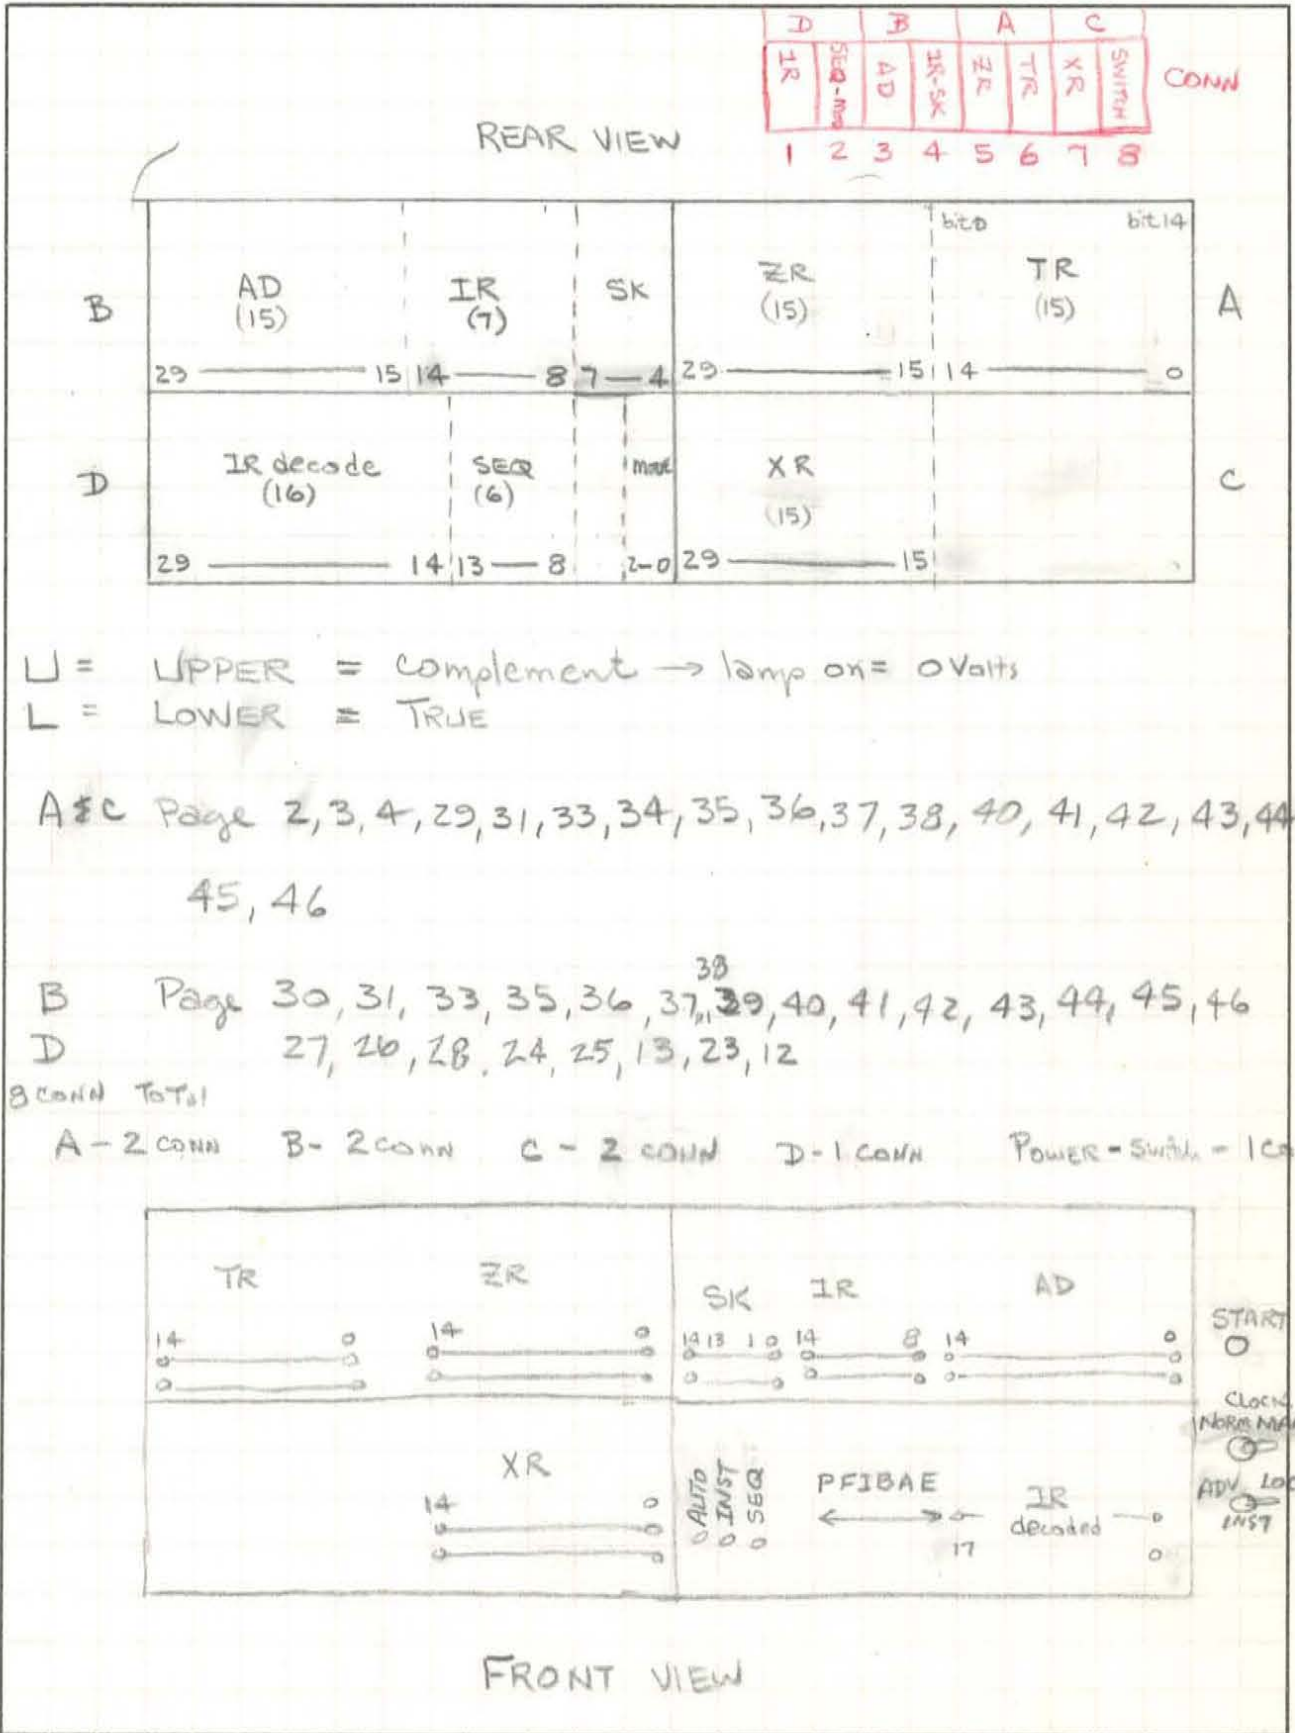 D B A C
IR SEQ-Mod AD IR-SK ZR TR XR SWITCH CONN
1 2 3 4 5 6 7 8
REAR VIEW
bit 0 bit 14
B AD IR SK ZR TR A
(15) (7) (15) (15)
29 15 14 8 7 4 29 15 14 0
D IR decode SEQ XR C
(16) (6) (15)
29 14 13 8 2-0 29 15
U = UPPER = complement → lamp on = 0 Volts
L = LOWER = TRUE
A & C Page 2, 3, 4, 29, 31, 33, 34, 35, 36, 37, 38, 40, 41, 42, 43, 44
45, 46
38
B Page 30, 31, 33, 35, 36, 37, 39, 40, 41, 42, 43, 44, 45, 46
D 27, 26, 28, 24, 25, 13, 23, 12
8 CONN TOTAL
A - 2 CONN B - 2 CONN C - 2 CONN D - 1 CONN POWER - Switch - 1 CO
TR ZR SK IR AD
START
14 0 14 0 14 13 1 0 14 8 14 0
CLOCK
NORM MA
XR AUTO INST SEQ PFIBAE IR
decoded
ADV LOC
INST
14 0 17
FRONT VIEW